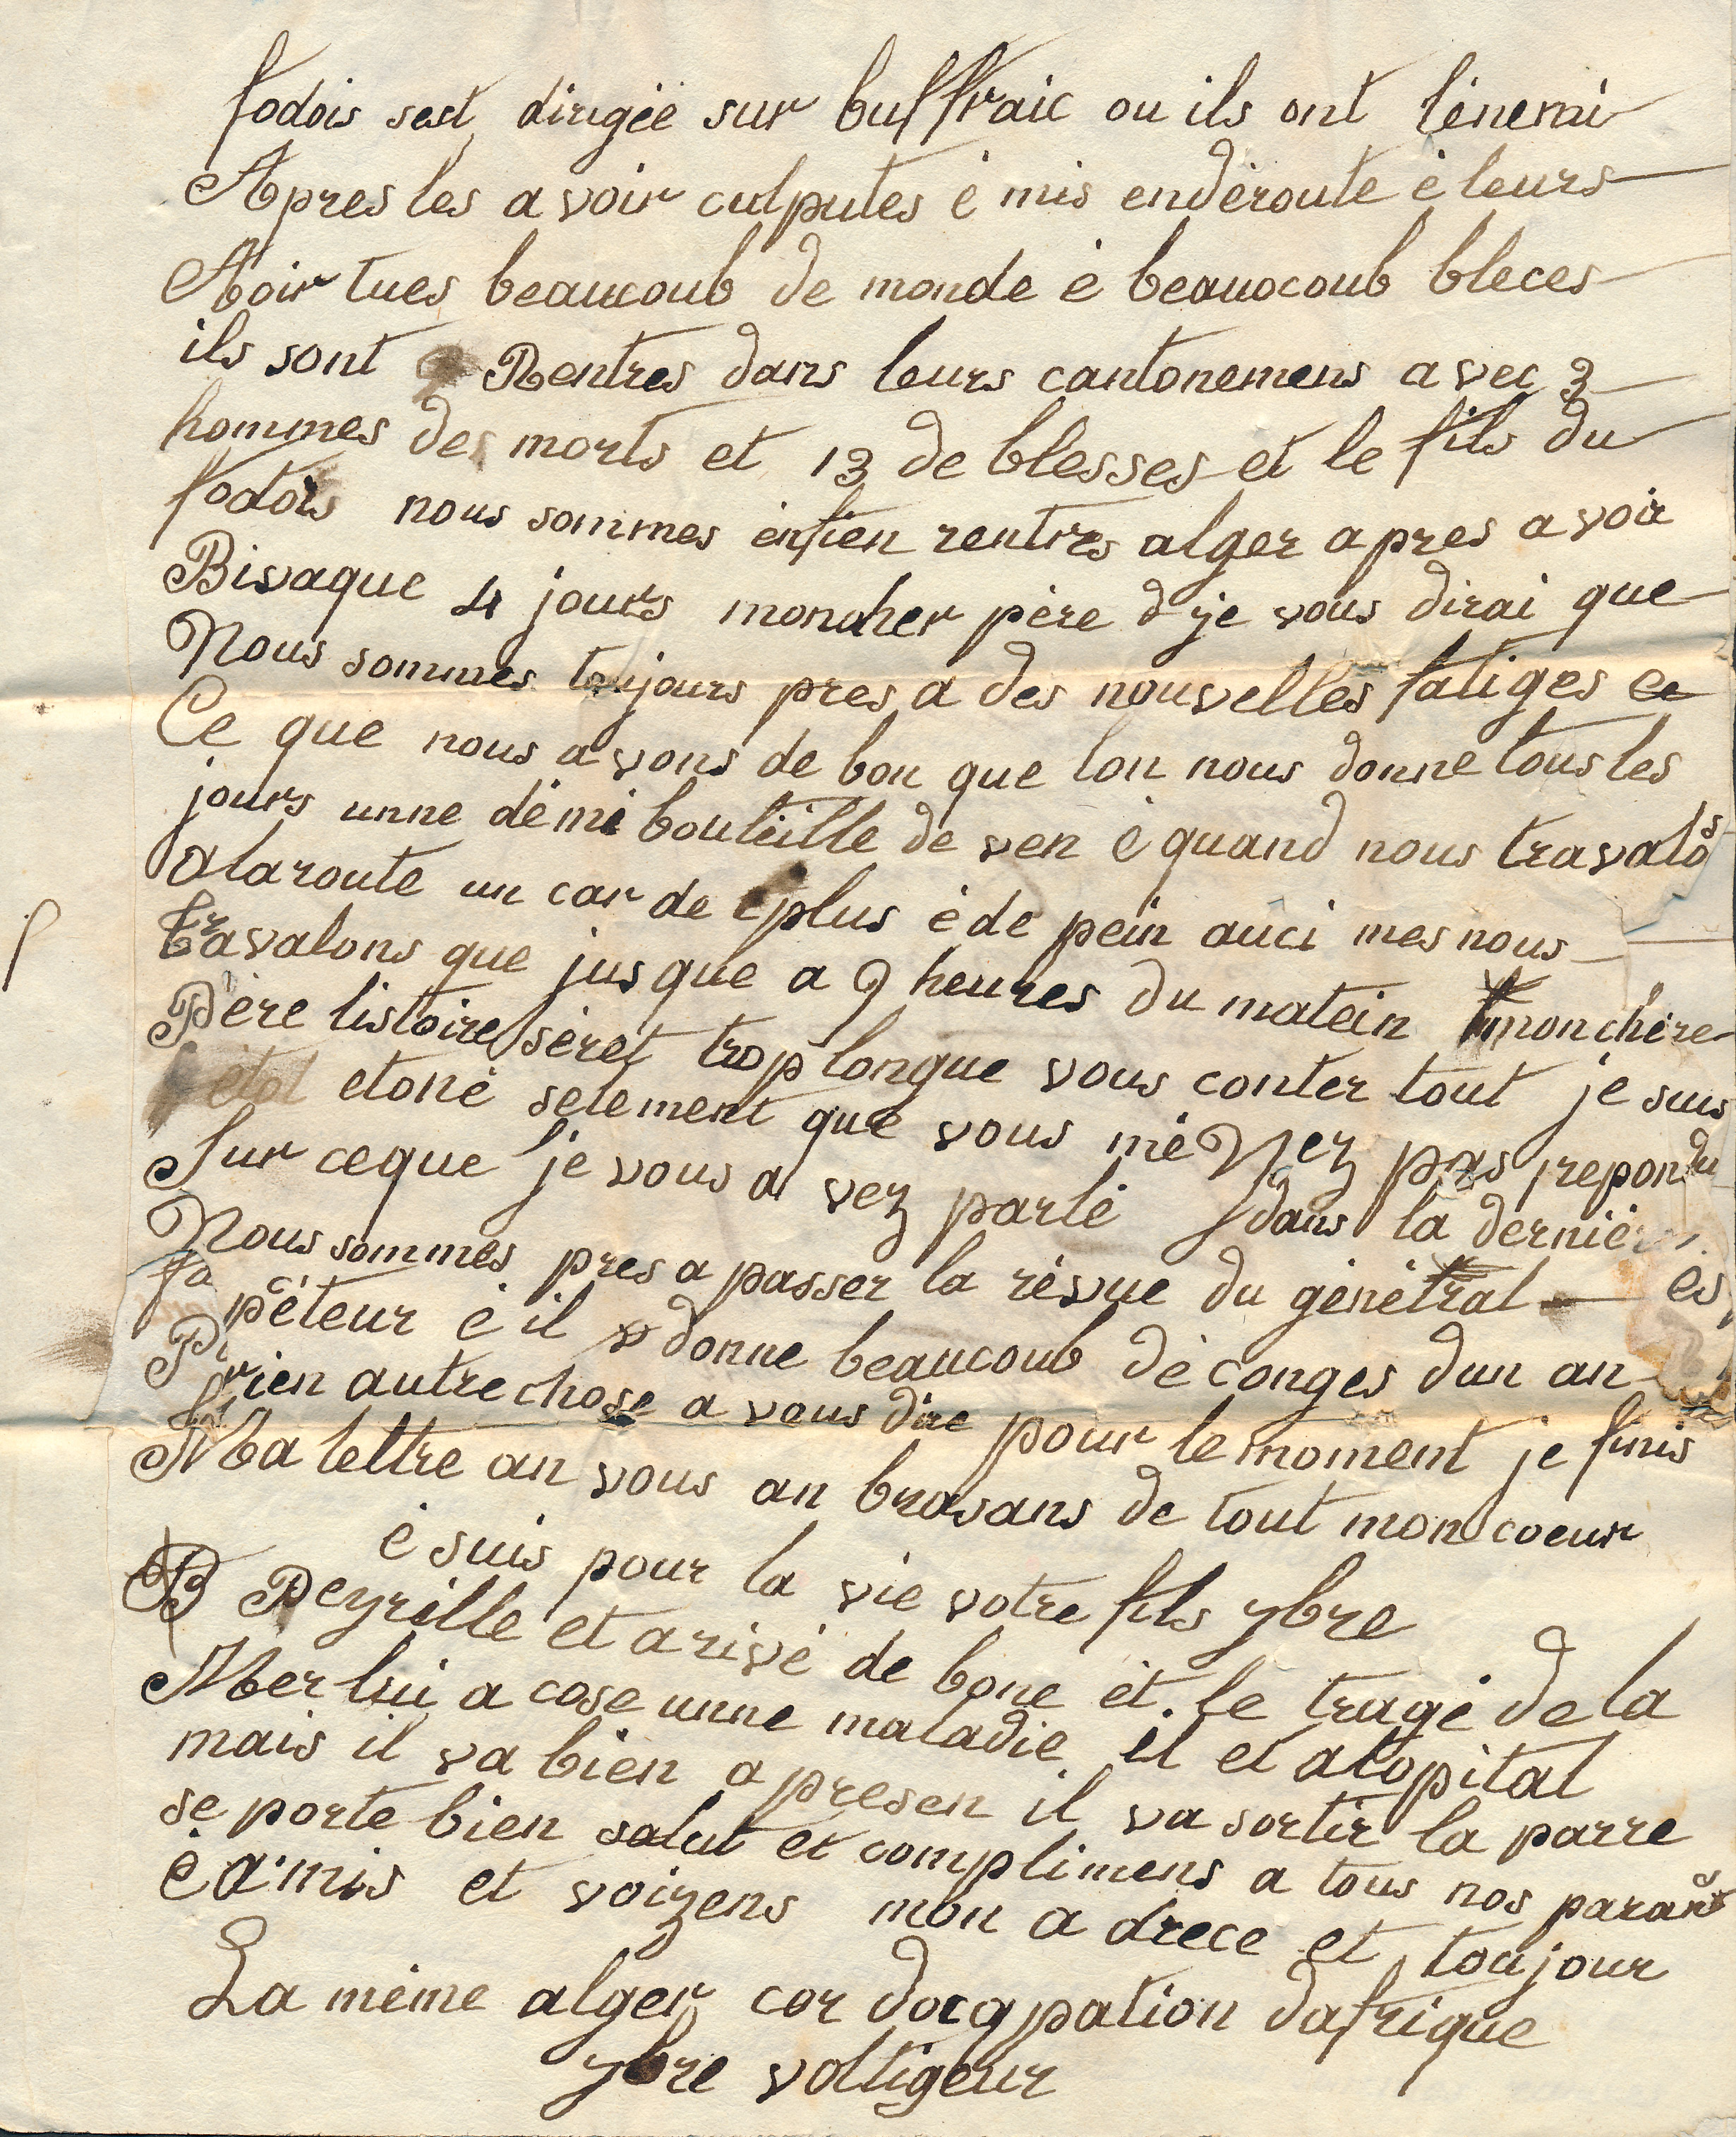 fodois sest dirigéé sur buffraic ou ils ont lénemi
Apres les a voir culputes é mis endéroute é leurs
Avoir tues beaucoub de monde é beauocoub bleces
ils sont Rentres dans leurs cantonemens a vec 3
hommes des morts et 13 de blesses et le fils du
fodois nous sommes enfien rentres alger a pres a voir
Bivaque 4 jours moncher père je vous dirai que
Nous sommes toujours pres a des nouvelles fatiges et
Ce que nous a vons de bon que lon nous donne tous les
jours unne démi bouteille de ven é quand nous travalos
alaroute un car de plus é de pein auci mes nous
travalons que jus que a 9 heures du matein monchére
Père listoire séret trop longue vous conter tout je suis
etoné selement que vous mé Nez pas repondu
Sur ceque je vous a vez parlé dans la derniére
Nous sommes pres a passer la révue du général es
péteur é il donne beaucoub dé conges dun an
rien autre chose a vous dire pour le moment je finis
Ma lettre an vous an brasans de tout mon coeur
é suis pour la vie votre fils ybre
B Peyrille et arivé de bone ét le tragé de la
Mer lui a cose unne maladie il et alopital
mais il va bien a presen il va sortir la parre
se porte bien salut et complimens a tous nos parans
é amis et voizens mon a drece et toujour
La méme alger cor docqpation dafrique
ybre voltigeur